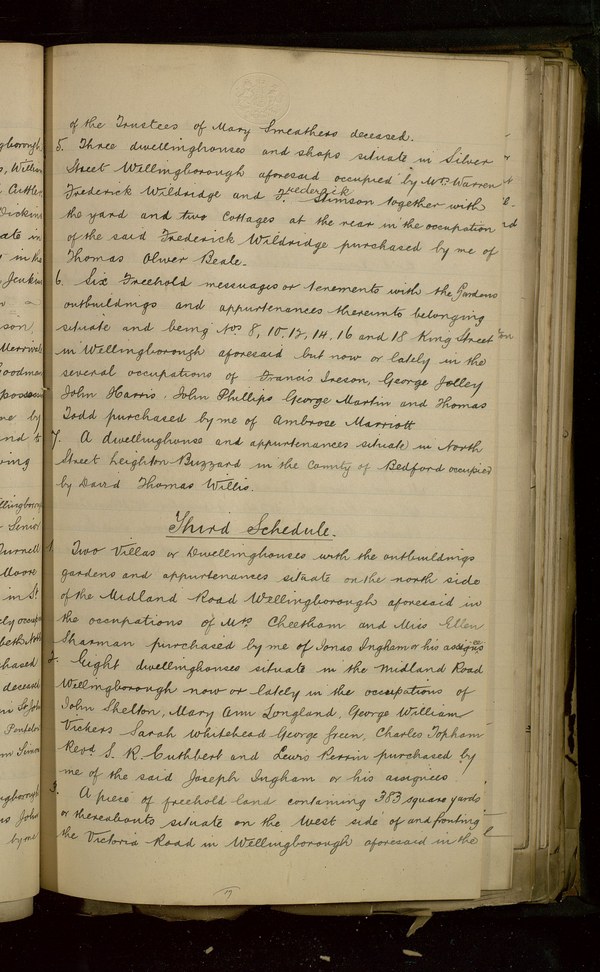 of the Trustees of Mary Smeathers deceased.
5. Three dwellinghouses and shops situate in Silver
Street Wellingborough aforesaid occupied by Mrs Warren
Frederick Wildridge and Frederick Stimson together with
the yard and two Cottages at the rear in the occupation
of the said Frederick Wildridge purchased by me of
Thomas Oliver Beale.
6. Six Freehold messuages or tenements with the Gardens
outbuildings and appurtenances thereunto belonging
situate and being Nos 8, 10, 12, 14, 16 and 18 King Street
in Wellingborough aforesaid but now or lately in the
several occupations of Francis Ireson, George Jolley
John Harris, John Phillips George Martin and Thomas
Todd purchased by me of Ambrose Marriott
7. A dwellinghouse and appurtenances situate in North
Street Leighton Buzzard in the County of Bedford occupied
by David Thomas Willis.
Third Schedule.
1. Two Villas or Dwellinghouses with the outbuildings
gardens and appurtenances situate on the north side
of the Midland Road Wellingborough aforesaid in
the occupations of Mrs Cheetham and Miss Ellen
Sharman purchased by me of Jonas Ingham or his assignees
2. Eight dwellinghouses situate in the Midland Road
Wellingborough now or lately in the occupations of
John Shelton, Mary Ann Longland, George William
Vickers Sarah Whitehead George Green, Charles Topham
Revd. S. R. Cuthbert and Lewis Perrin purchased by
me of the said Joseph Ingham or his assignees
3. A piece of freehold land containing 383 square yards
or thereabouts situate on the West side of and fronting
the Victoria Road in Wellingborough aforesaid in the